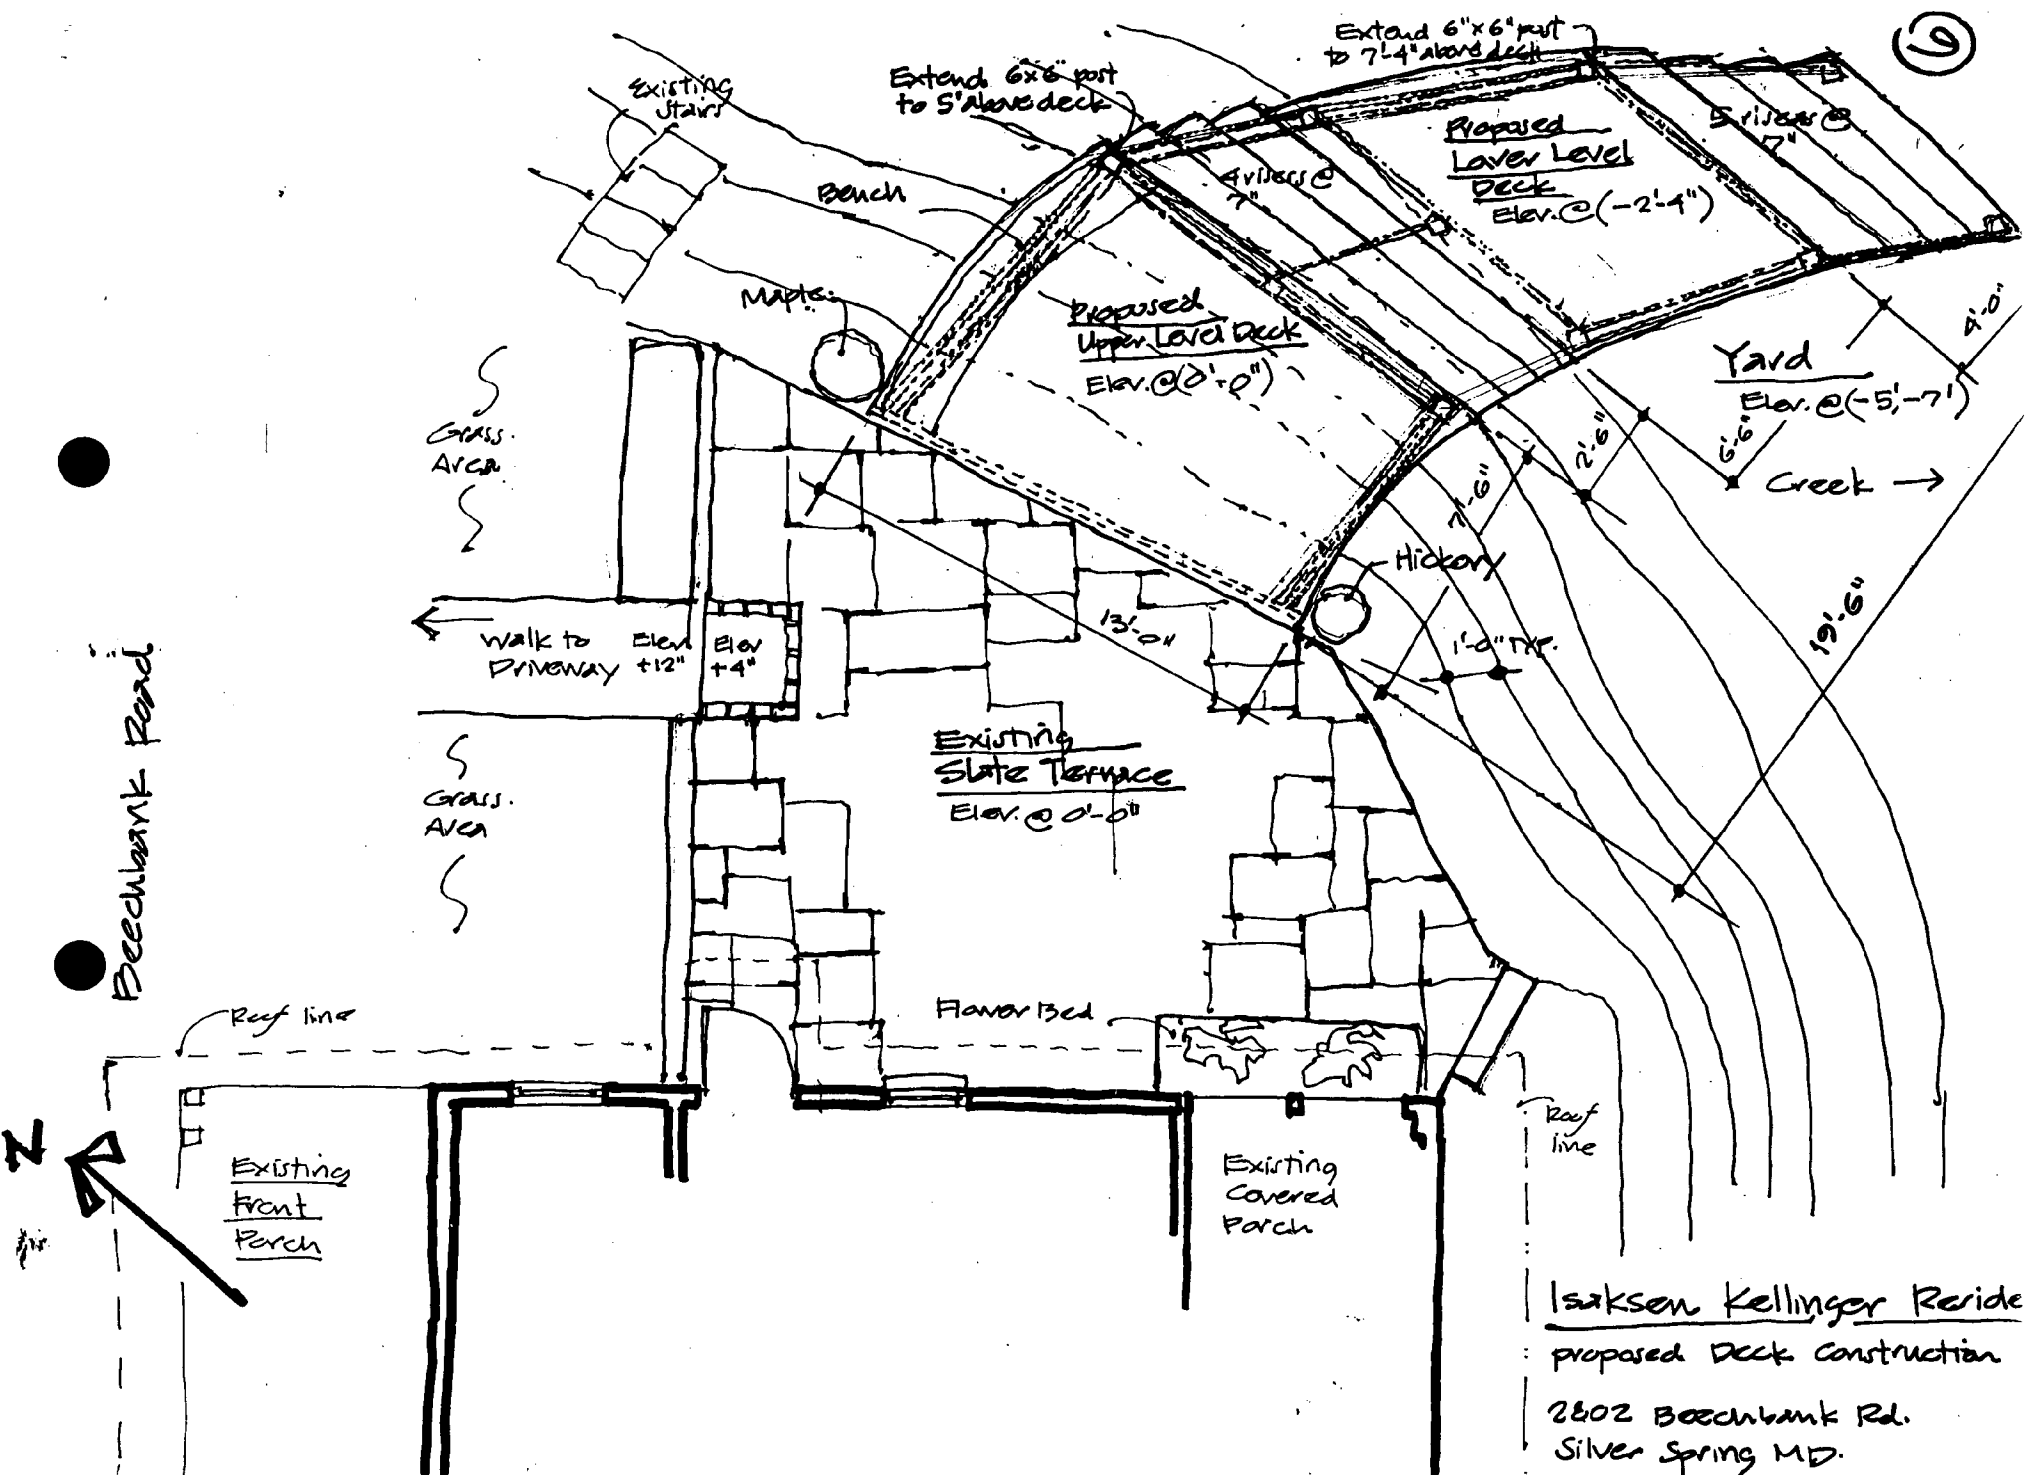 6
Extend 6"x6" post
to 7'-4" above deck
Extend 6x6" post
to 5' above deck
Existing
Stairs
5 risers @
7"
Proposed
Lower Level
Deck
Elev. @ (-2'-4")
4 risers @
7"
Bench
Maple
Proposed
Upper Level Deck
Elev. @ (0'-0")
4'-0"
Yard
Elev. @ (-5',-7')
6'-6"
2'-6"
7'-6"
Creek
Grass
Area
Hickory
19'-6"
13'-0"
1'-0" TYP.
Walk to
Driveway
Elev
+12"
Elev
+4"
Beechbank Road
Existing
Slate Terrace
Elev. @ 0'-0"
Grass
Area
Roof line
Flower Bed
Roof
line
N
Existing
Front
Porch
Existing
Covered
Porch
Isaksen Kellinger Reside
proposed Deck Construction
2802 Beechbank Rd.
Silver Spring MD.